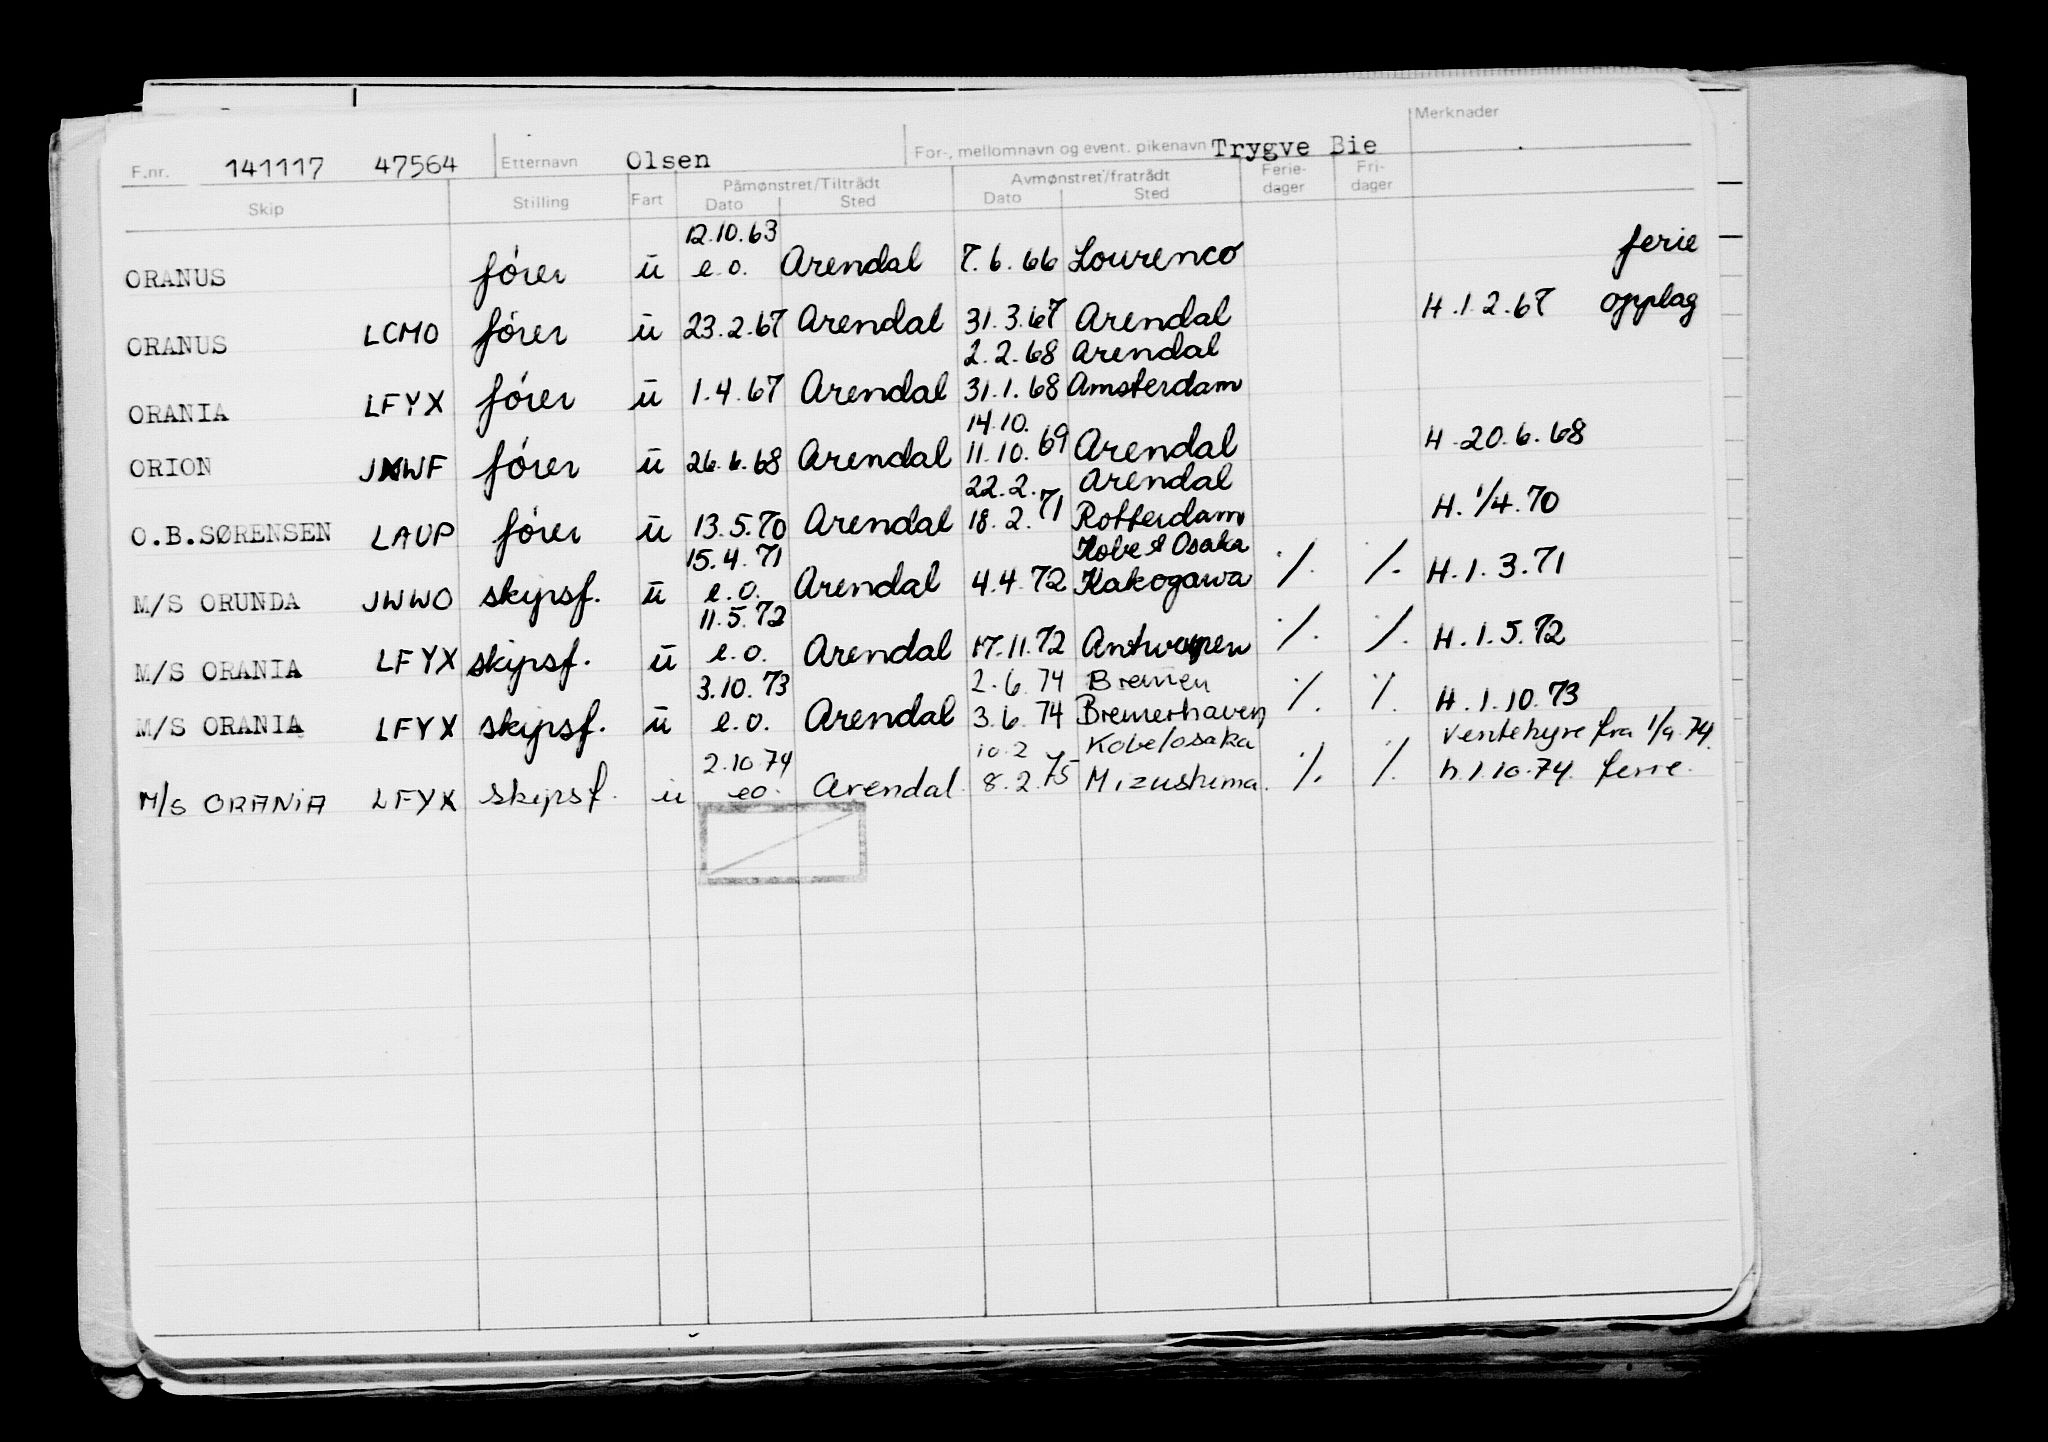 Merknader
F.nr. 141117 47564 Etternavn Olsen For-, mellomnavn og event. pikenavn Trygve Bie
Påmønstret/Tiltrådt Avmønstret/fratrådt Ferie- Fri-
Skip Stilling Fart Dato Sted Dato Sted dager dager
12.10.63 ferie
ORANUS fører u e.o. Arendal 7.6.66 Lourenco
ORANUS LCMO fører u 23.2.67 Arendal 31.3.67 Arendal H.1.2.67 opplag
2.2.68 Arendal
ORANIA LFYX fører u 1.4.67 Arendal 31.1.68 Amsterdam
14.10.
ORION fører u 26.6.68 Arendal 11.10.69 Arendal H.20.6.68
22.2. Arendal
O.B.SØRENSEN LAUP fører u 13.5.70 Arendal 18.2.71 Rotterdam H.1/4.70
15.4.71 Kobe & Osaka
M/S ORUNDA JWWO skipsf. u e.o. Arendal 4.4.72 Kakogawa ./. ./. H.1.3.71
11.5.72
M/S ORANIA LFYX skipsf. u e.o. Arendal 17.11.72 Antwerpen ./. ./. H.1.5.72
3.10.73 2.6.74 Bremen
M/S ORANIA LFYX skipsf. u e.o. Arendal 3.6.74 Bremerhaven ./. ./. H.1.10.73
2.10.74 10.2 Kobe/osaka ventehyre fra 1/9.74.
M/S ORANIA LFYX skipsf. u eo. Arendal 8.2.75 Mizushima. ./. ./. h.1.10.74. ferie.